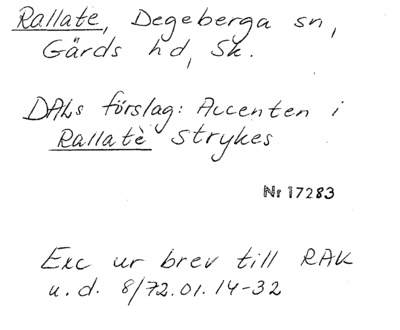 Rallate, Degeberga sn,
Gärds hd, Sk.
DALs förslag: Accenten i
Rallatè strykes
Nr 17283
Exc ur brev till RAK
u. d. 8/72.01.14-32